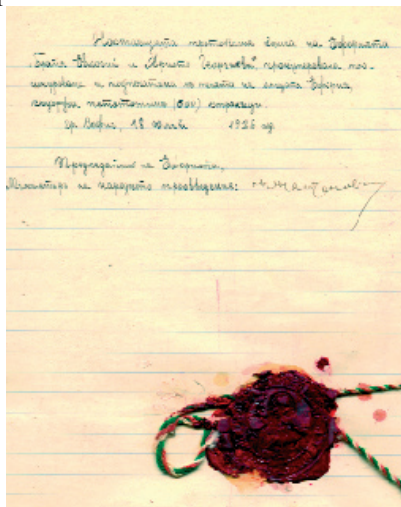 Настоящата протоколна книга на Ефорията
"Братя Евлогий и Христо Георгиеви", прошнурована, и подпечатана съ печата на същата Ефория,
съдържа (600) страници.
гр. София, 18 1926 год.
Председателъ на Ефорията,
Министъръ на народното просвѣщение: